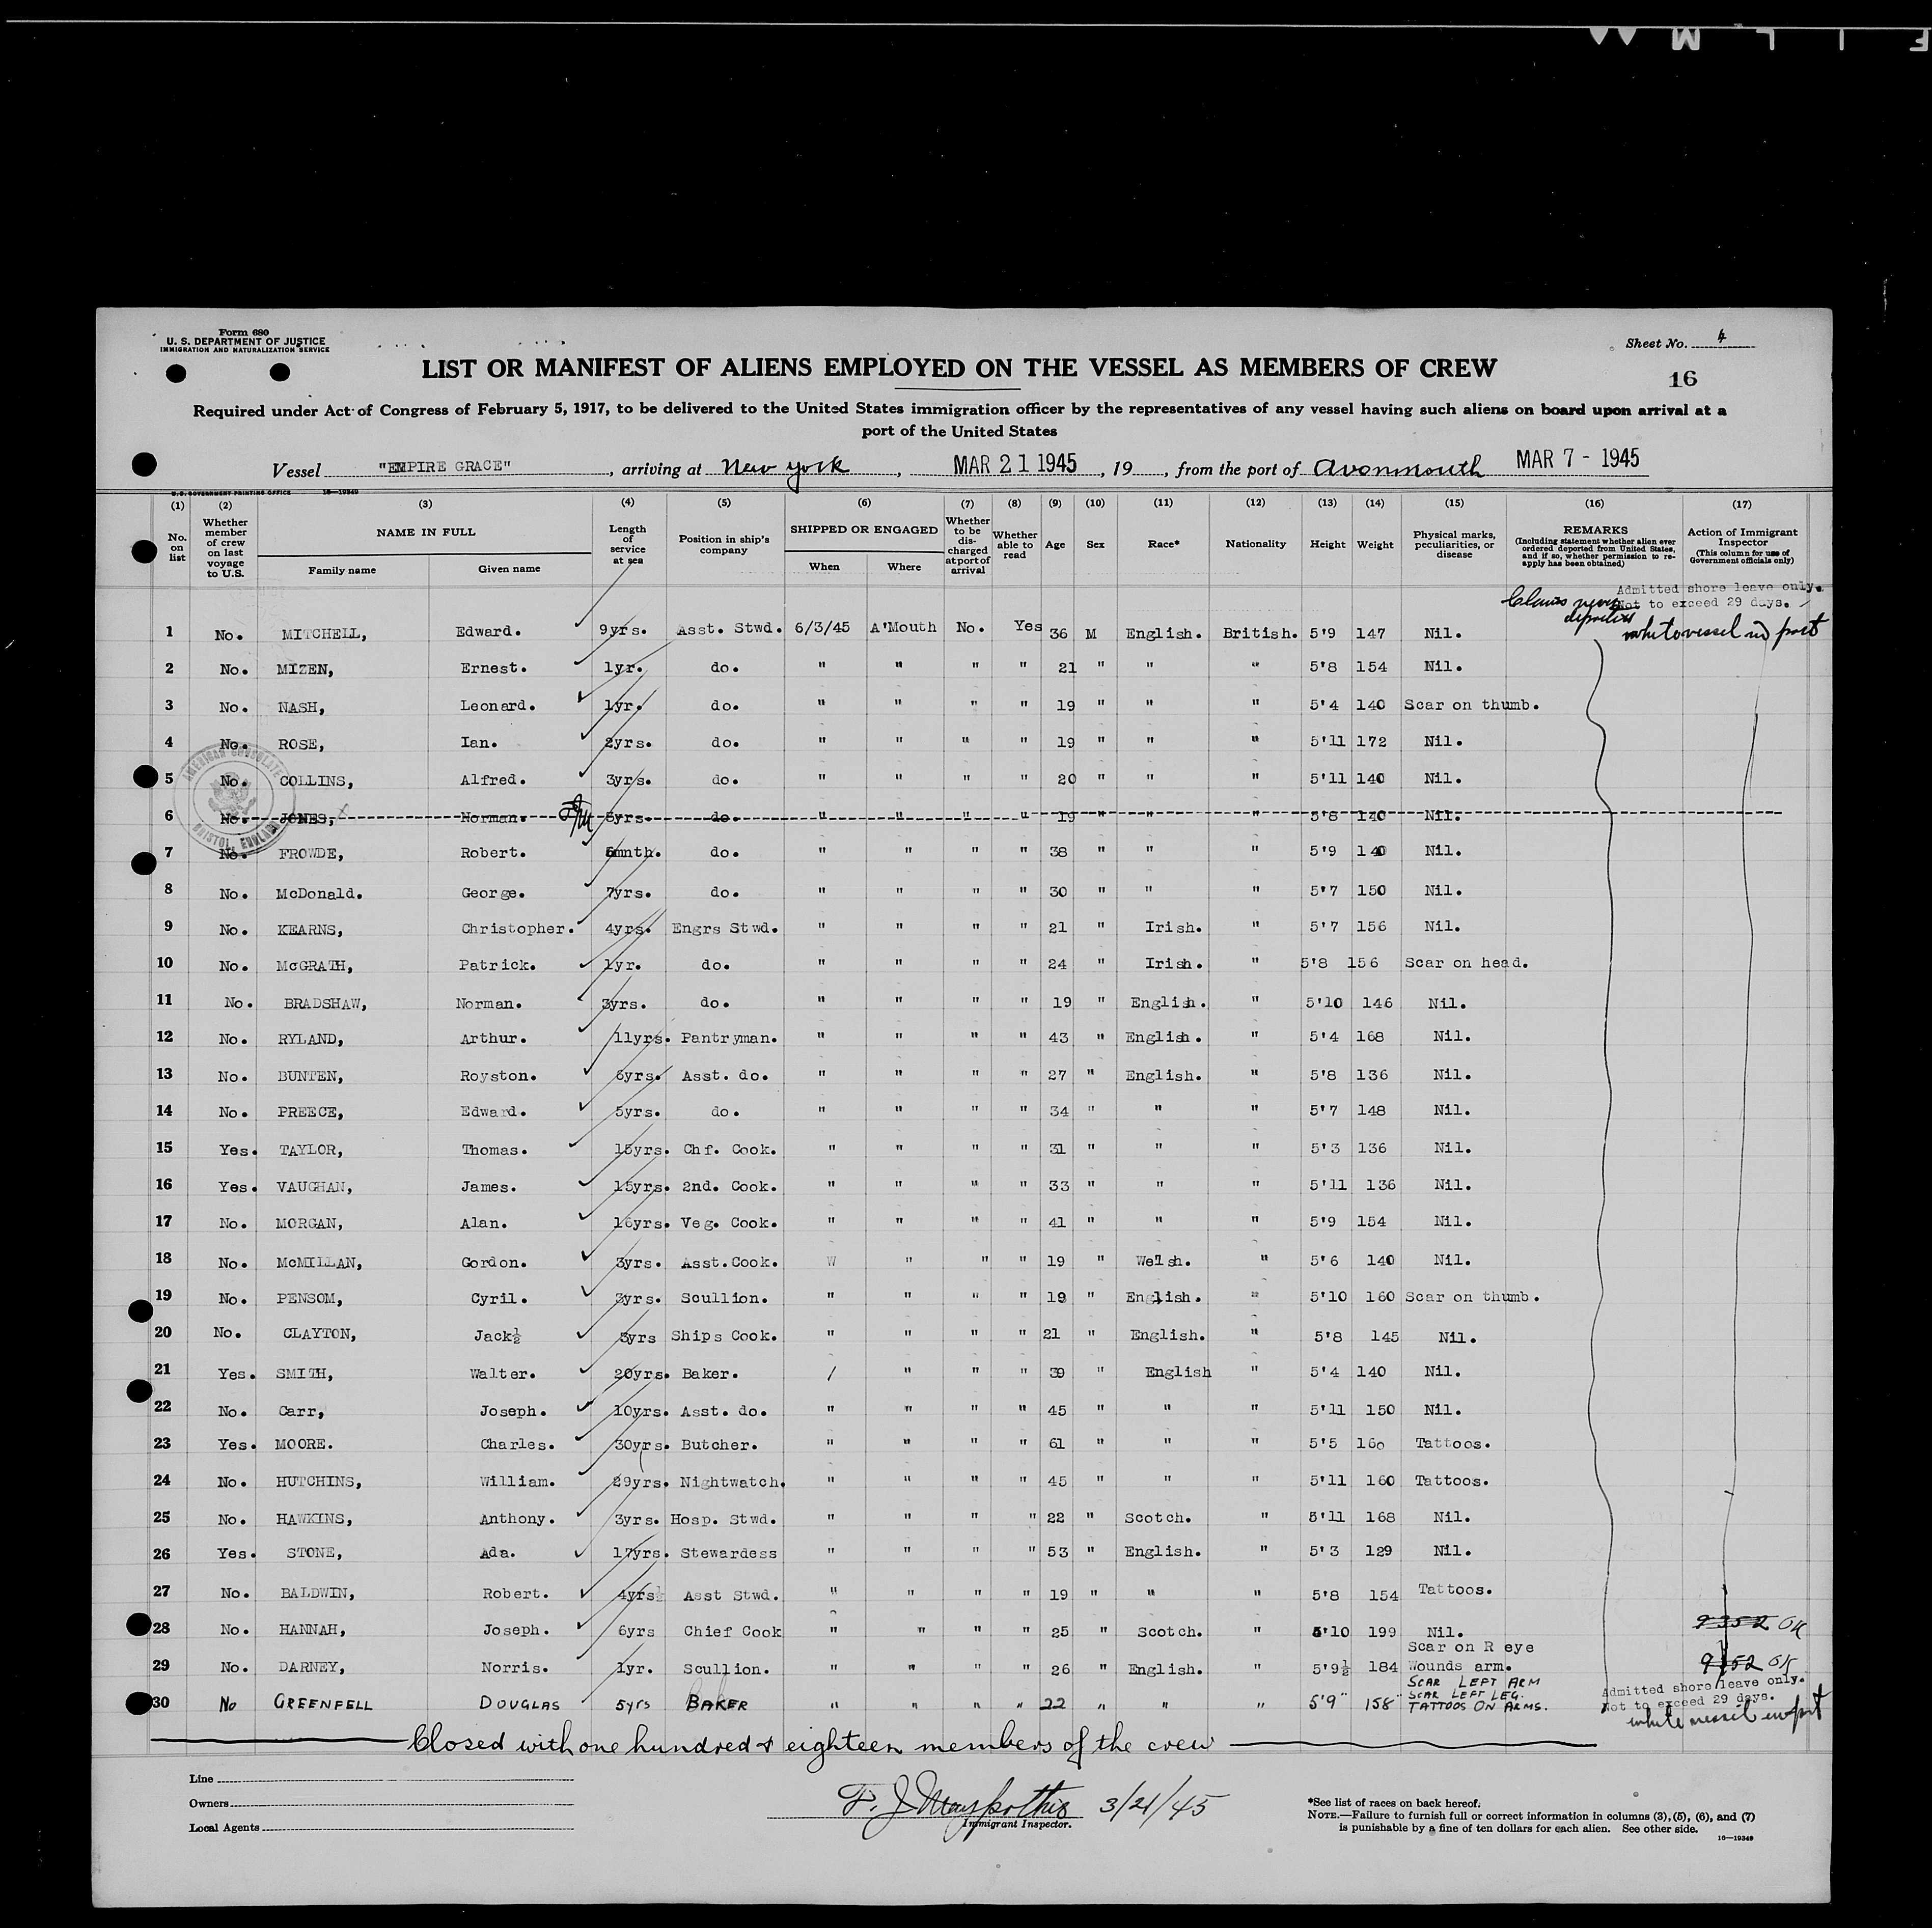 F I L M
Form 680
U. S. DEPARTMENT OF JUSTICE
IMMIGRATION AND NATURALIZATION SERVICE
Sheet No. 4
LIST OR MANIFEST OF ALIENS EMPLOYED ON THE VESSEL AS MEMBERS OF CREW
16
Required under Act of Congress of February 5, 1917, to be delivered to the United States immigration officer by the representatives of any vessel having such aliens on board upon arrival at a
port of the United States
Vessel "EMPIRE GRACE", arriving at New York, MAR 21 1945, 19, from the port of Avonmouth MAR 7 - 1945
U.S. GOVERNMENT PRINTING OFFICE 16—19349
(1) (2) (3) (4) (5) (6) (7) (8) (9) (10) (11) (12) (13) (14) (15) (16) (17)
No. on list
Whether member of crew on last voyage to U.S.
NAME IN FULL
Family name
Given name
Length of service at sea
Position in ship's company
SHIPPED OR ENGAGED
When
Where
Whether to be discharged at port of arrival
Whether able to read
Age
Sex
Race*
Nationality
Height
Weight
Physical marks, peculiarities, or disease
REMARKS
(Including statement whether alien ever ordered deported from United States, and if so, whether permission to reapply has been obtained)
Action of Immigrant Inspector
(This column for use of Government officials only)
Admitted shore leave only.
Not to exceed 29 days.
Claims never deported
while vessel in port
1 No. MITCHELL, Edward. 9yrs. Asst. Stwd. 6/3/45 A'Mouth No. Yes 36 M English. British. 5'9 147 Nil.
2 No. MIZEN, Ernest. 1yr. do. " " " " 21 " " " 5'8 154 Nil.
3 No. NASH, Leonard. 1yr. do. " " " " 19 " " " 5'4 140 Scar on thumb.
4 No. ROSE, Ian. 2yrs. do. " " " " 19 " " " 5'11 172 Nil.
5 No. COLLINS, Alfred. 3yrs. do. " " " " 20 " " " 5'11 140 Nil.
6 No. JONES, Norman. yrs. do. " " " " 19 " " " 5'8 140 Nil.
AMERICAN CONSULATE
BRISTOL, ENGLAND
7 No. FROWDE, Robert. 6mnth. do. " " " " 38 " " " 5'9 140 Nil.
8 No. McDonald. George. 7yrs. do. " " " " 30 " " " 5'7 150 Nil.
9 No. KEARNS, Christopher. 4yrs. Engrs Stwd. " " " " 21 " Irish. " 5'7 156 Nil.
10 No. McGRATH, Patrick. 1yr. do. " " " " 24 " Irish. " 5'8 156 Scar on head.
11 No. BRADSHAW, Norman. 3yrs. do. " " " " 19 " English. " 5'10 146 Nil.
12 No. RYLAND, Arthur. 11yrs. Pantryman. " " " " 43 " English. " 5'4 168 Nil.
13 No. BUNTEN, Royston. 6yrs. Asst. do. " " " " 27 " English. " 5'8 136 Nil.
14 No. PREECE, Edward. 5yrs. do. " " " " 34 " " " 5'7 148 Nil.
15 Yes. TAYLOR, Thomas. 15yrs. Chf. Cook. " " " " 31 " " " 5'3 136 Nil.
16 Yes. VAUGHAN, James. 15yrs. 2nd. Cook. " " " " 33 " " " 5'11 136 Nil.
17 No. MORGAN, Alan. 16yrs. Veg. Cook. " " " " 41 " " " 5'9 154 Nil.
18 No. McMILLAN, Gordon. 3yrs. Asst.Cook. W " " " 19 " Welsh. " 5'6 140 Nil.
19 No. PENSOM, Cyril. 3yrs. Scullion. " " " " 19 " English. " 5'10 160 Scar on thumb.
20 No. CLAYTON, Jack½ 3yrs Ships Cook. " " " " 21 " English. " 5'8 145 Nil.
21 Yes. SMITH, Walter. 20yrs. Baker. / " " " 39 " English " 5'4 140 Nil.
22 No. Carr, Joseph. 10yrs. Asst. do. " " " " 45 " " " 5'11 150 Nil.
23 Yes. MOORE. Charles. 30yrs. Butcher. " " " " 61 " " " 5'5 160 Tattoos.
24 No. HUTCHINS, William. 29yrs. Nightwatch. " " " " 45 " " " 5'11 160 Tattoos.
25 No. HAWKINS, Anthony. 3yrs. Hosp. Stwd. " " " " 22 " Scotch. " 5'11 168 Nil.
26 Yes. STONE, Ada. 17yrs. Stewardess " " " " 53 " English. " 5'3 129 Nil.
27 No. BALDWIN, Robert. 4yrs½ Asst Stwd. " " " " 19 " " " 5'8 154 Tattoos.
28 No. HANNAH, Joseph. 6yrs Chief Cook " " " " 25 " Scotch. " 5'10 199 Nil. 9352 OK
29 No. DARNEY, Norris. 1yr. Scullion. " " " " 26 " English. " 5'9½ 184 Scar on R eye Wounds arm. 9352 OK
30 No GREENFELL DOUGLAS 5yrs BAKER " " " " 22 " " " 5'9" 158" SCAR LEFT ARM SCAR LEFT LEG. TATTOOS ON ARMS.
Admitted shore leave only.
Not to exceed 29 days.
while vessel in port
Closed with one hundred & eighteen members of the crew
Line
Owners
Local Agents
F. J. 3/21/45
Immigrant Inspector.
*See list of races on back hereof.
NOTE.—Failure to furnish full or correct information in columns (3), (5), (6), and (7)
is punishable by a fine of ten dollars for each alien. See other side.
16—19349